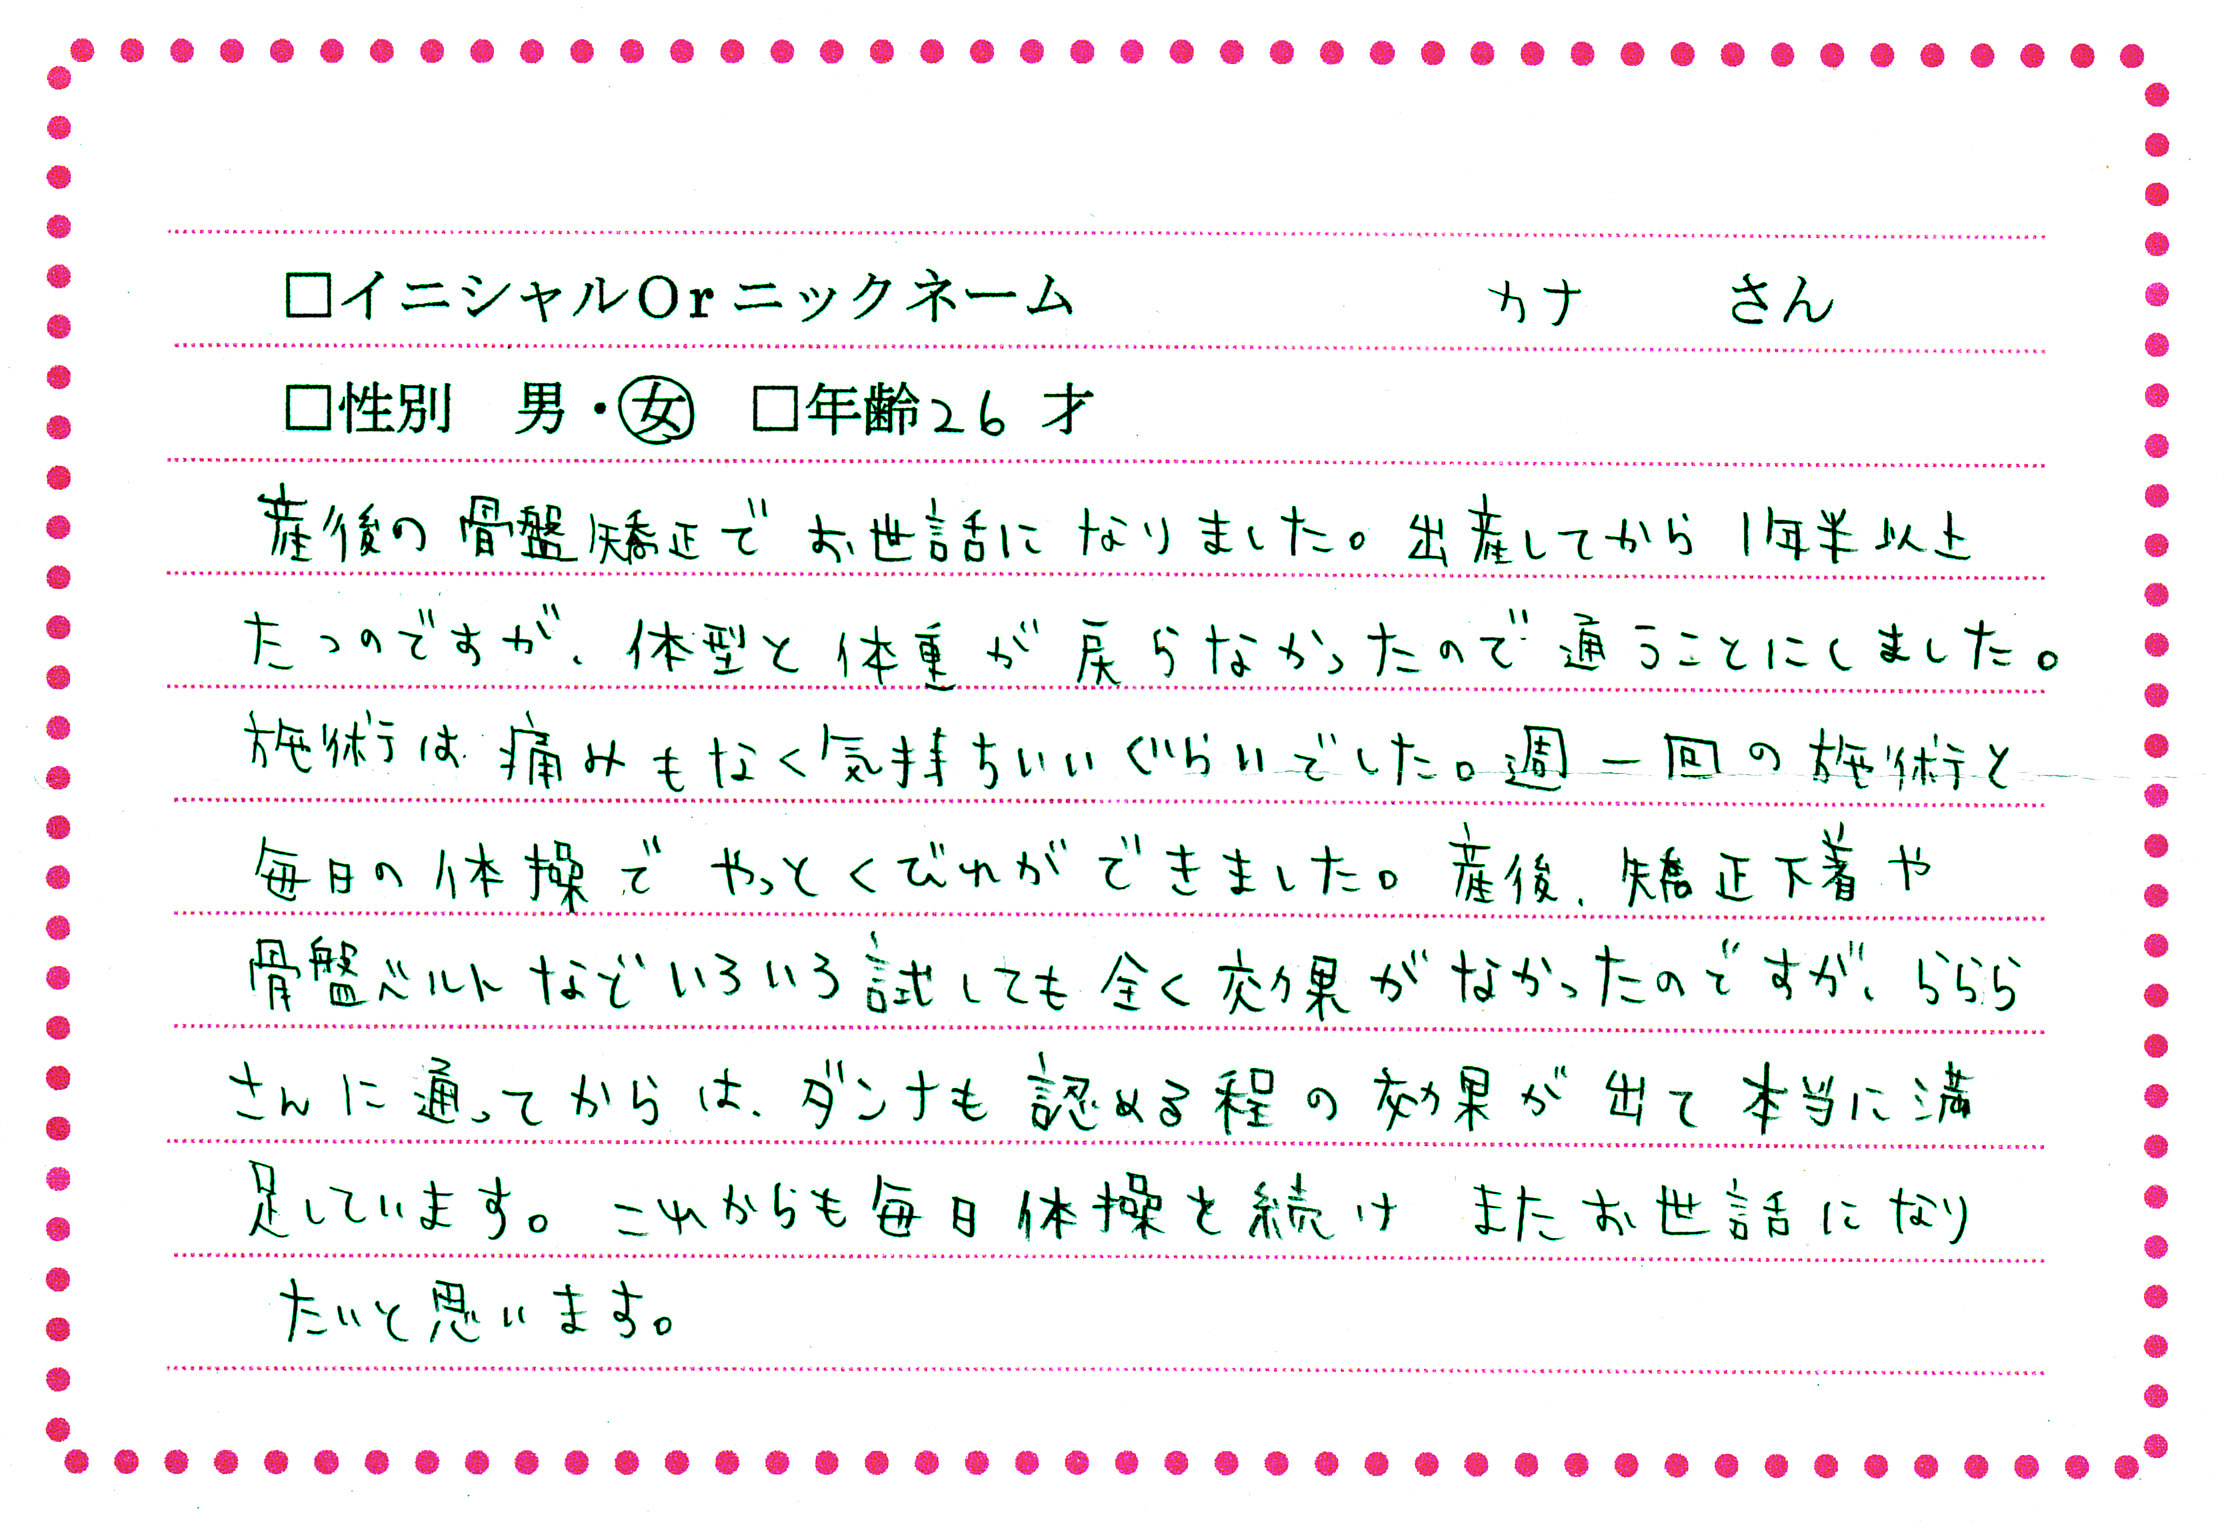 □イニシャルOrニックネーム　カナ　さん
□性別　男・女　□年齢26才
産後の骨盤矯正でお世話になりました。出産してから1年半以上
たつのですが、体型と体重が戻らなかったので通うことにしました。
施術は痛みもなく気持ちいいぐらいでした。週一回の施術と
毎日の体操でやっとくびれができました。産後、矯正下着や
骨盤ベルトなどいろいろ試しても全く効果がなかったのですが、ららら
さんに通ってからは、ダンナも認める程の効果が出て本当に満
足しています。これからも毎日体操を続けまたお世話になり
たいと思います。